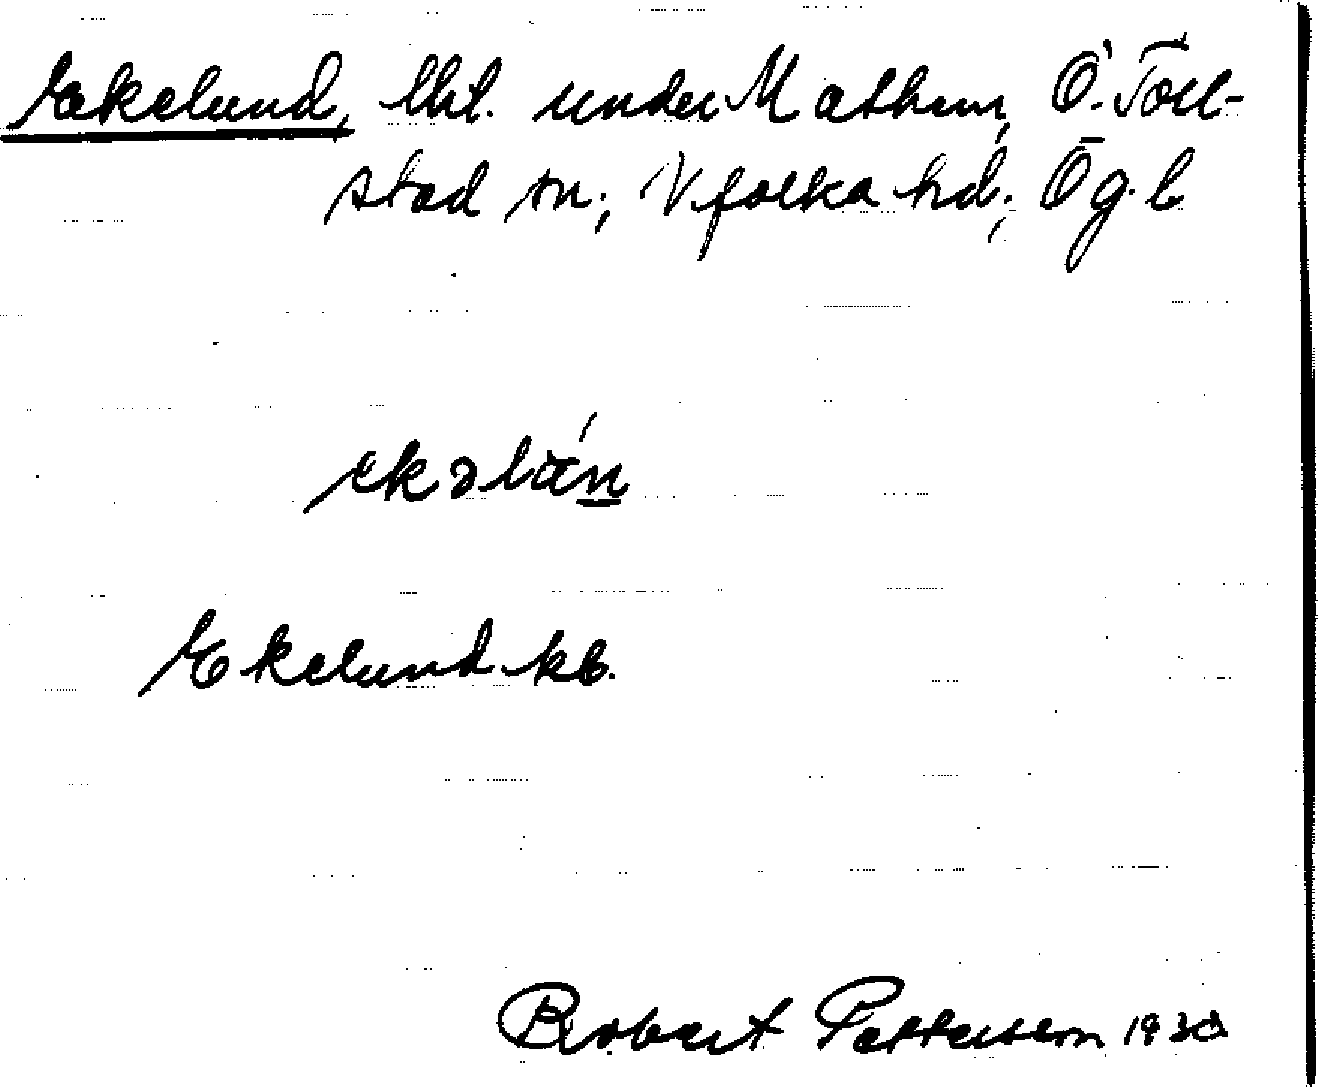 Ekelund, lht. under Mathem, Ö. Toll-
stad sn; Vifolka hd; Ög. l
Ekelund kb.
Robert Pettersson 1930